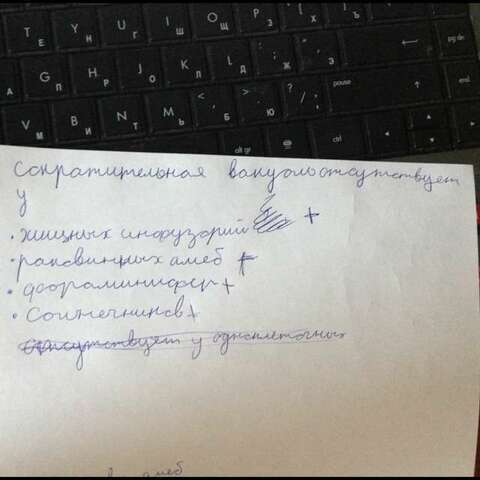 Т Е Y Н U Г I Ш O Щ P З { [ Х } ] Ъ pg dn
А G П H Р J О K Л L Д : ; Ж " ' Э pause end
V М B И N Т M Ь < , Б > . Ю ? /
alt gr ctrl
Сократительная вакуоль отсутствует
у
• хищных инфузорий +
• раковинных амеб +
• фораминифер +
• Солнечников +
отсутствует у одноклеточных
амеб